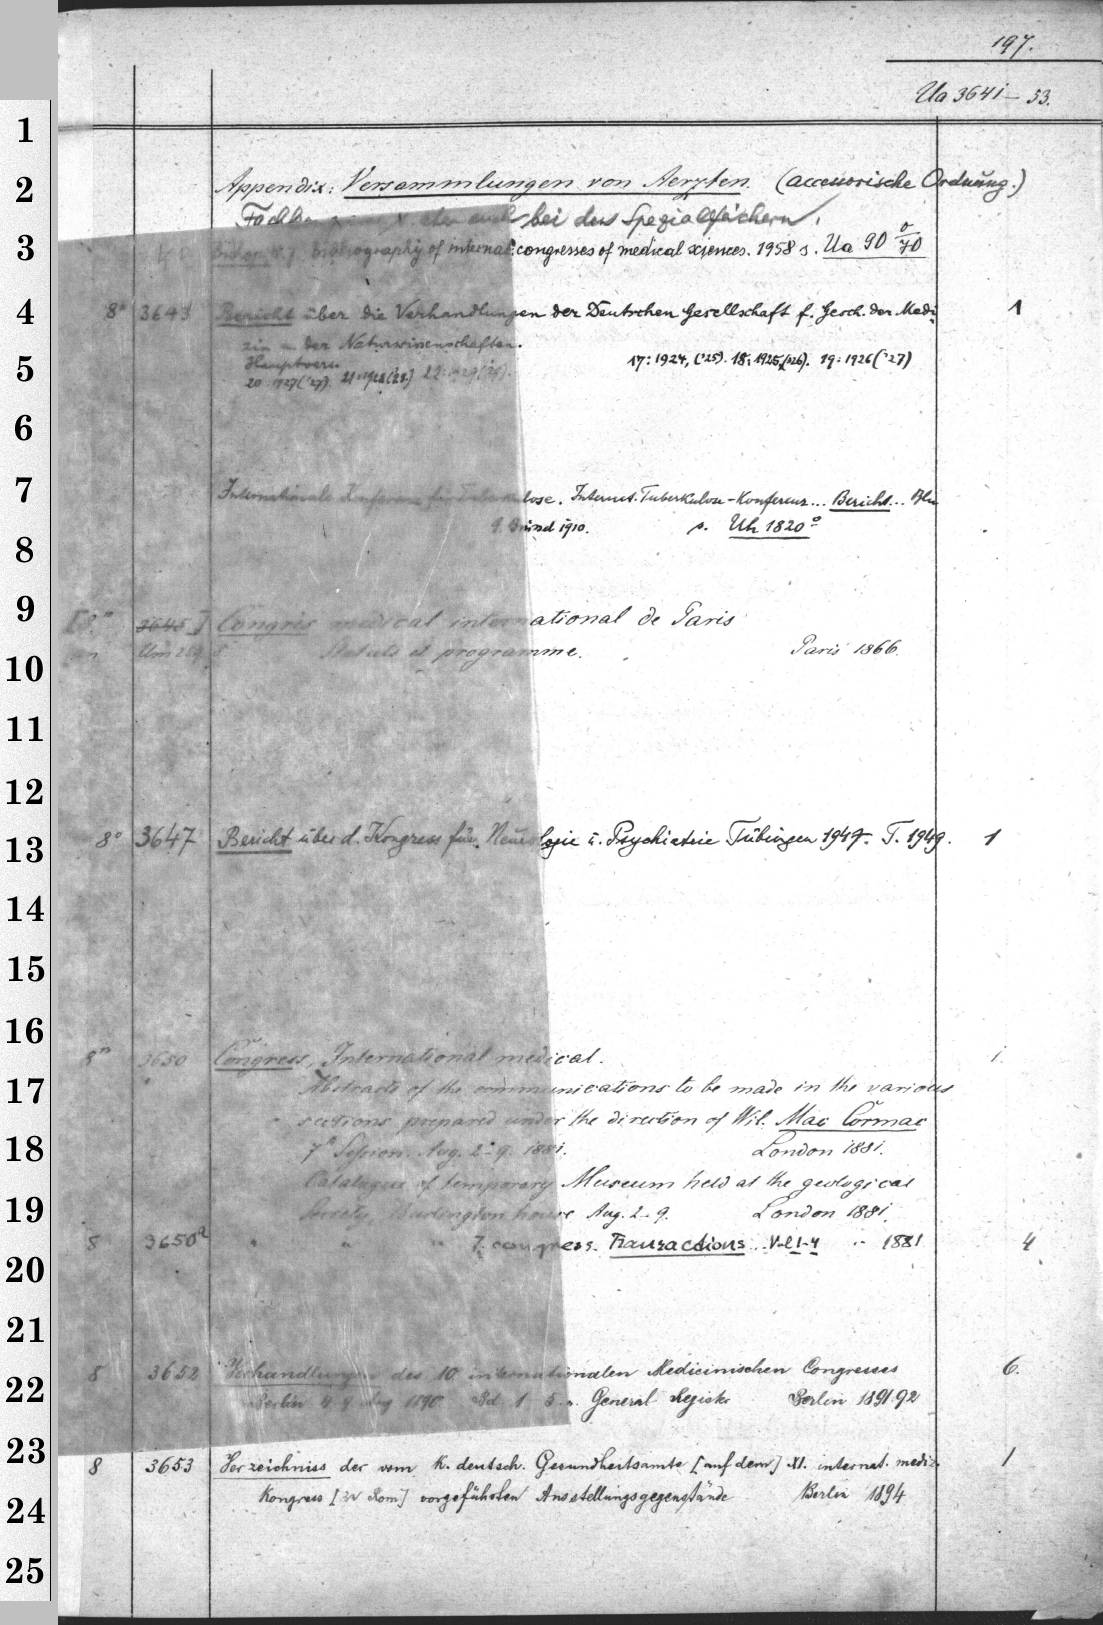 197.
Ua 3641 – 53.
Appendix: Versammlungen von Aerzten. (accessorische Ordnung.)
auch bei den Spezialfächern.
Bibliography of internat. congresses of medical sciences. 1958 s. Ua 90 70
8° 3643 Bericht über die Verhandlungen der Deutschen Gesellschaft f. Gesch. der Medi- 1
zin u. der Naturwissenschaften.
Hauptvers. 17: 1924, ('25). 18: 1925, ('26). 19: 1926 ('27)
20 1927 ('27). 21: 1928 ('28.) 22: 1929 ('29).
Internationale Konferenz für Tuberkulose. Internat. Tuberkulose-Konferenz... Bericht... Bln
9. Brüssel 1910. s. Uh 1820
3645] Congrès médical international de Paris
Statuts et programme. Paris 1866.
8° 3647 Bericht über d. Kongress für Neurologie u. Psychiatrie Tübingen 1947. T. 1949. 1
3650 Congress, International medical. 1.
Abstracts of the communications to be made in the various
sections prepared under the direction of Wil. Mac Cormac
7 Session. Aug. 2-9. 1881. London 1881.
Catalogue of temporary Museum held at the geological
Society, Burlington house Aug. 2–9. London 1881.
8 3650a " " " 7. congress. Transactions. Vol 1-4 " 1881 4
8 3652 Verhandlungen des 10. internationalen Medicinischen Congresses 6.
Berlin 4-9 Aug 1890 Bd 1-5 u. General Register Berlin 1891.92
8 3653 Verzeichniss der vom K. deutsch. Gesundheitsamte [auf dem] XI. internat. mediz. 1
Kongress [zu Rom] vorgeführten Ausstellungsgegenstände Berlin 1894
1
2
3
4
5
6
7
8
9
10
11
12
13
14
15
16
17
18
19
20
21
22
23
24
25